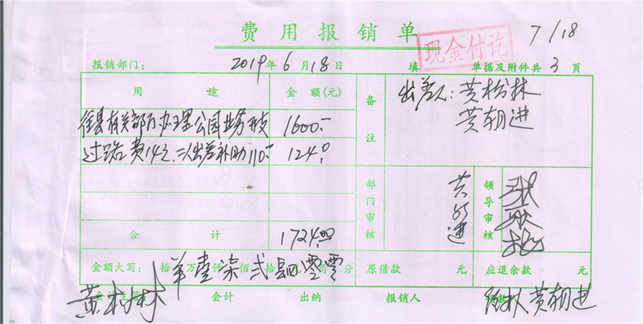 费用报销单
7/18
现金付讫
报销部门： 2019年6月18日 填 单据及附件共3页
用途 金额(元) 备注 出差人：黄松林
黄朝进
有关部门办理公园业务开支 1600.-
过路费14元、二人出差补助110.- 124.-
合计 1724.00
部门审核 领导审核
金额大写： 拾 万 仟 佰 拾 元 角 分 壹柒贰肆零零 原借款 元 应退余款 元
黄松林 会计 出纳 报销人 黄朝进